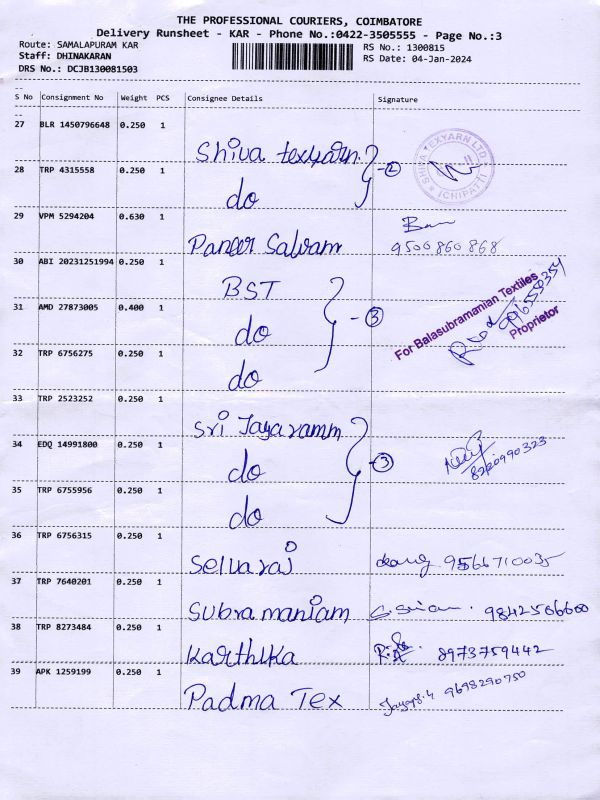 THE PROFESSIONAL COURIERS, COIMBATORE
Delivery Runsheet - KAR - Phone No.:0422-3505555 - Page No.:3
Route: SAMALAPURAM KAR
RS No.: 1300815
Staff: DHINAKARAN
RS Date: 04-Jan-2024
DRS No.: DCJB130081503
S No Consignment No Weight PCS Consignee Details Signature
27 BLR 1450796648 0.250 1 Shiva texyarn. } -②
SHIVA TEXYARN LTD
ICHIPATTI
28 TRP 4315558 0.250 1 do
29 VPM 5294204 0.630 1 Paneer Salvam
9500860868
30 ABI 20231251994 0.250 1 BST } -③
For Balasubramanian Textiles
Proprietor
31 AMD 27873005 0.400 1 do
32 TRP 6756275 0.250 1 do
33 TRP 2523252 0.250 1 Sri Jayaramm } -③
34 EDQ 14991800 0.250 1 do
8220990323
35 TRP 6755956 0.250 1 do
36 TRP 6756315 0.250 1 Selvaraj 9566710035
37 TRP 7640201 0.250 1 Subramaniam 9842506600
38 TRP 8273484 0.250 1 Karthika 8973759442
39 APK 1259199 0.250 1 Padma Tex 9698290750